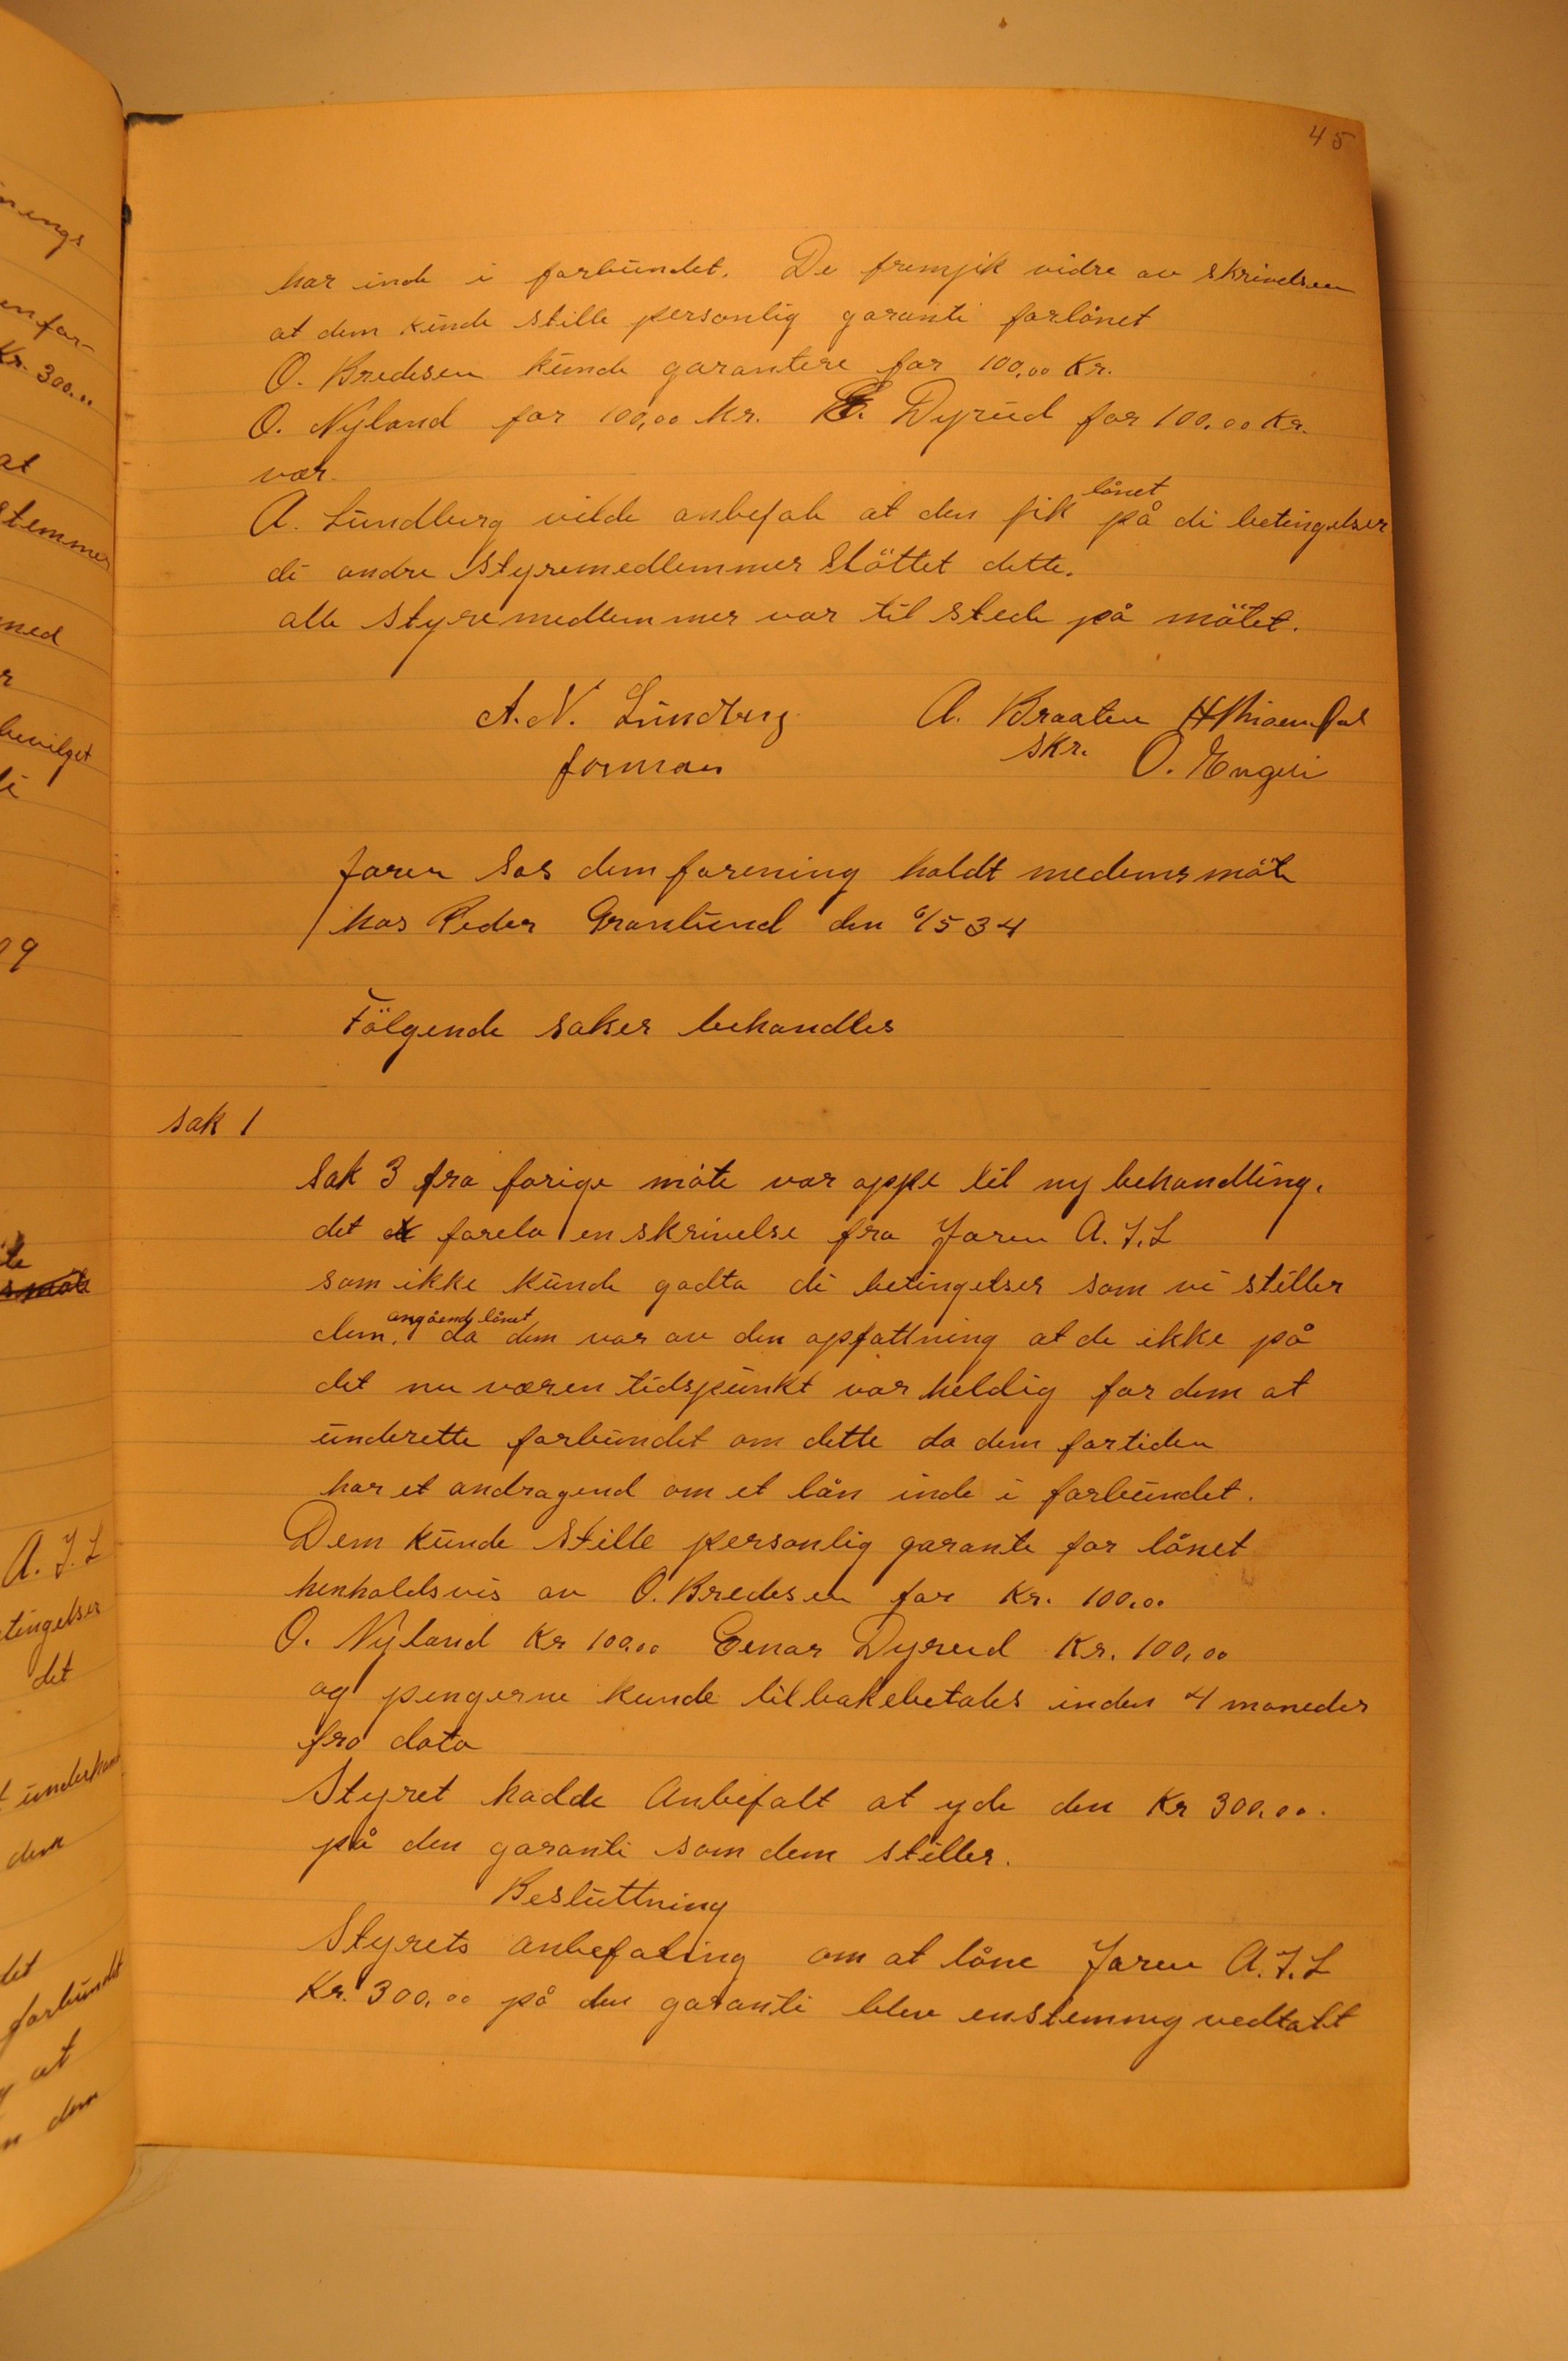 45
har inde i forbundet. De fremjik vidre av skrivelsen
at dem kunde stille personlig garanti forlånet
O. Bredesen kunde garantere for 100,00 Kr.
O. Nyland for 100,00 kr. E. Dyrud for 100,00 Kr.
vær.
A. Lundberg vilde anbefale at den fik lånet på di betingelser
di andre styremedlemmer Støttet dette.
alle styremedlemmer var til stede på mötet.
A. N. Lundberg A. Braaten
forman skr. O. Engeli
Jaren Sos dem forening holdt medemsmöte
hos Peder Granlund den 6/5 34
Fölgende saker behandles
sak 1
Sak 3 fra forige möte var oppe til ny behandling.
det forela en skrivelse fra Jaren A.I.L
som ikke kunde godta di betingelser som vi stiller
dem, angående lånet da dem var av den opfattning at de ikke på
det nu væren tidspunkt var heldig for dem at
underette forbundet om dette da dem fortiden
har et andragend om et lån inde i forbundet.
Dem kunde stille personlig garante for lånet
henholdsvis av O. Bredesen for Kr. 100,00
O. Nyland Kr 100,00 Einar Dyrud Kr. 100,00
og pengerne kunde tilbakebetales inden 4 maneder
fra dato
Styret hadde Anbefalt at yde den Kr 300,00.
på den garanti som dem stiller.
Besluttning
Styrets anbefaling om at låne Jaren A.I.L
Kr. 300,00 på den garanti blev enstemmig vedtatt